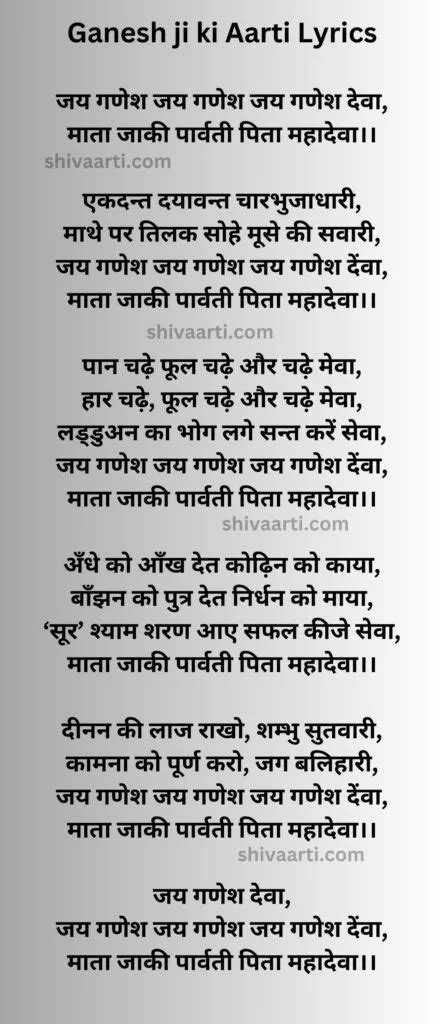 Ganesh ji ki Aarti Lyrics
जय गणेश जय गणेश जय गणेश देवा,
माता जाकी पार्वती पिता महादेवा।।
shivaarti.com
एकदन्त दयावन्त चारभुजाधारी,
माथे पर तिलक सोहे मूसे की सवारी,
जय गणेश जय गणेश जय गणेश देंवा,
माता जाकी पार्वती पिता महादेवा।।
shivaarti.com
पान चढ़े फूल चढ़े और चढ़े मेवा,
हार चढ़े, फूल चढ़े और चढ़े मेवा,
लड्डुअन का भोग लगे सन्त करें सेवा,
जय गणेश जय गणेश जय गणेश देंवा,
माता जाकी पार्वती पिता महादेवा।।
shivaarti.com
अँधे को आँख देत कोढ़िन को काया,
बाँझन को पुत्र देत निर्धन को माया,
‘सूर’ श्याम शरण आए सफल कीजे सेवा,
माता जाकी पार्वती पिता महादेवा।।
दीनन की लाज राखो, शम्भु सुतवारी,
कामना को पूर्ण करो, जग बलिहारी,
जय गणेश जय गणेश जय गणेश देंवा,
माता जाकी पार्वती पिता महादेवा।।
shivaarti.com
जय गणेश देवा,
जय गणेश जय गणेश जय गणेश देंवा,
माता जाकी पार्वती पिता महादेवा।।